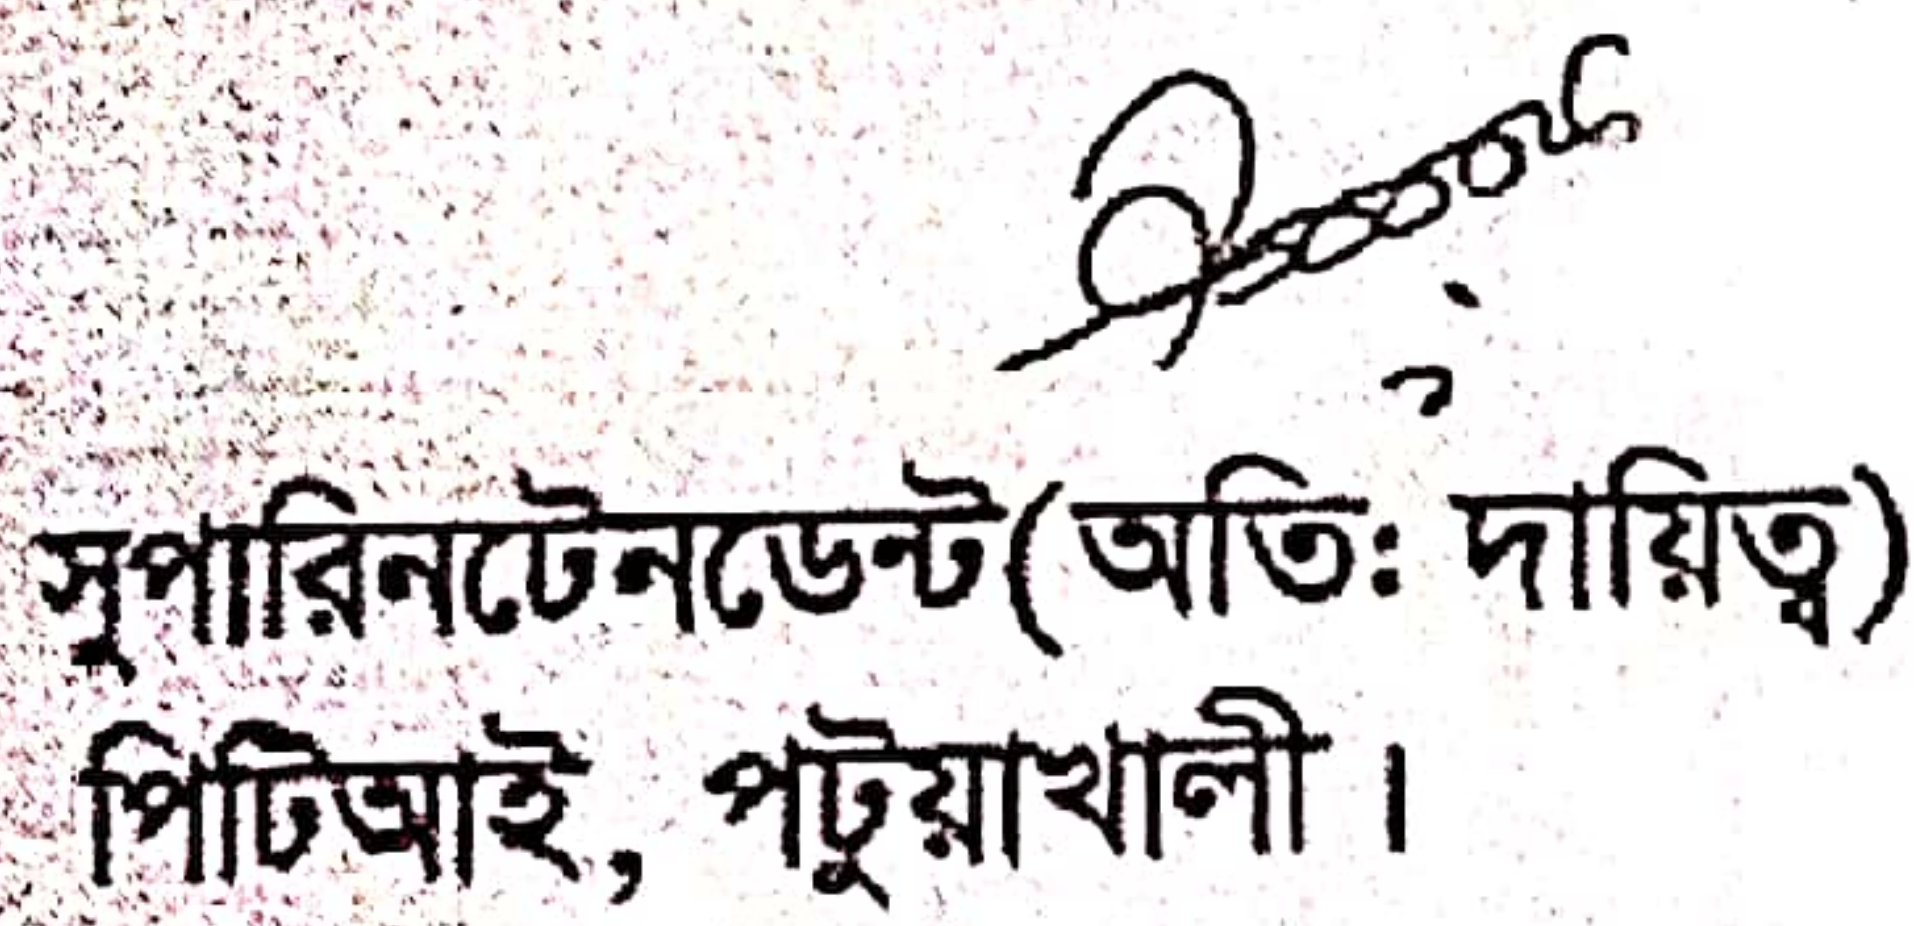 সুপারিনটেনডেন্ট(অতিঃ দায়িত্ব)
পিটিআই, পটুয়াখালী।